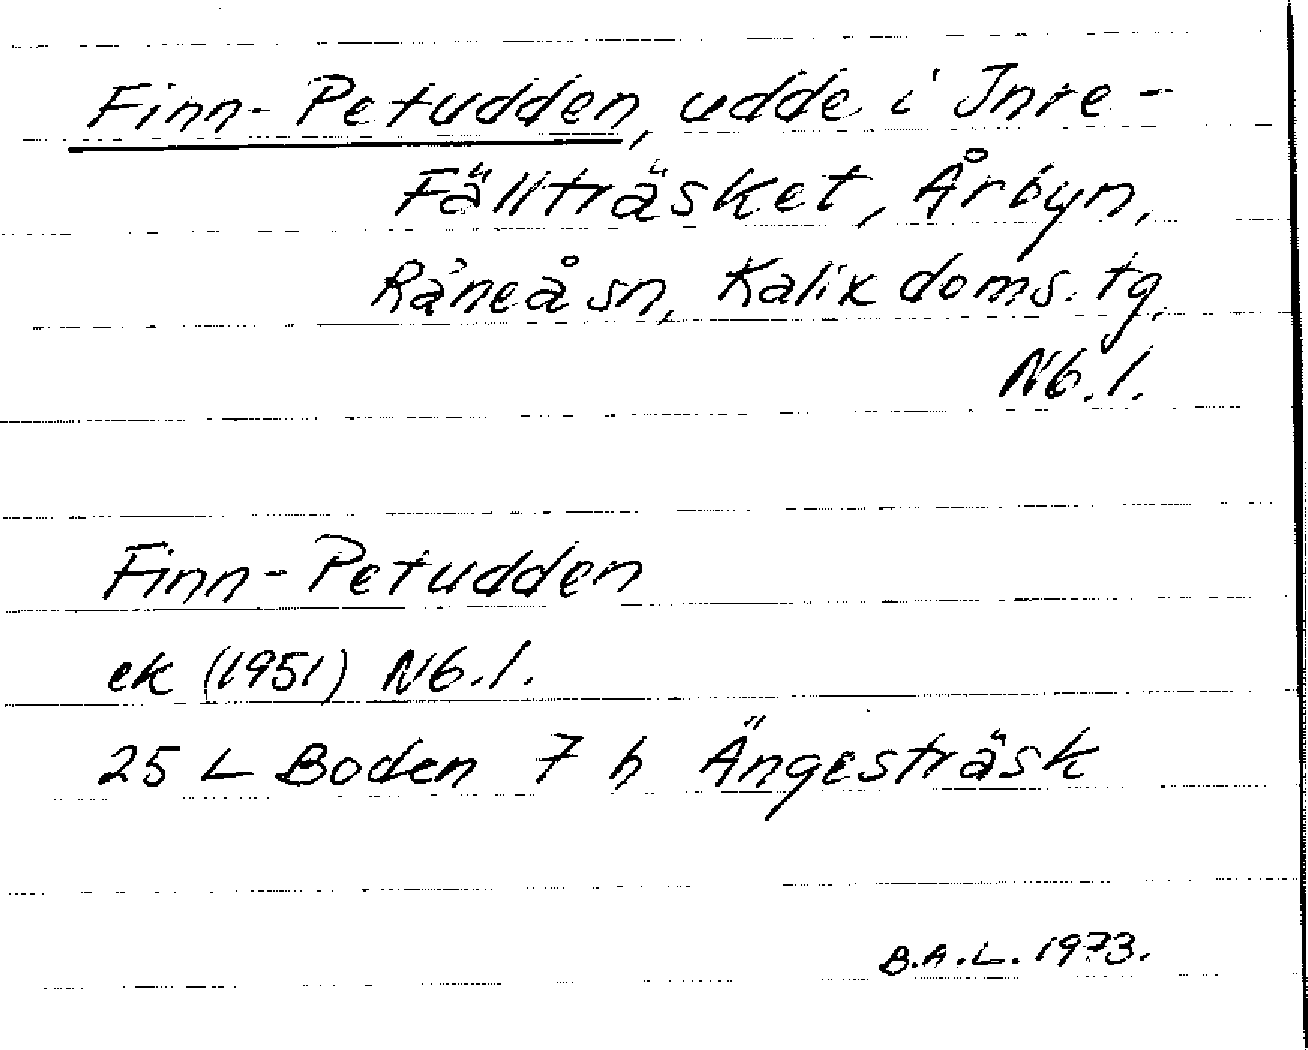 Finn-Petudden, udde i Inre-
Fällträsket, Årbyn,
Råneå sn, Kalix doms. tg.
Nb. l.
Finn-Petudden
ek (1951) Nb. l.
25 L Boden 7 h Ängesträsk
B.A.L. 1973.